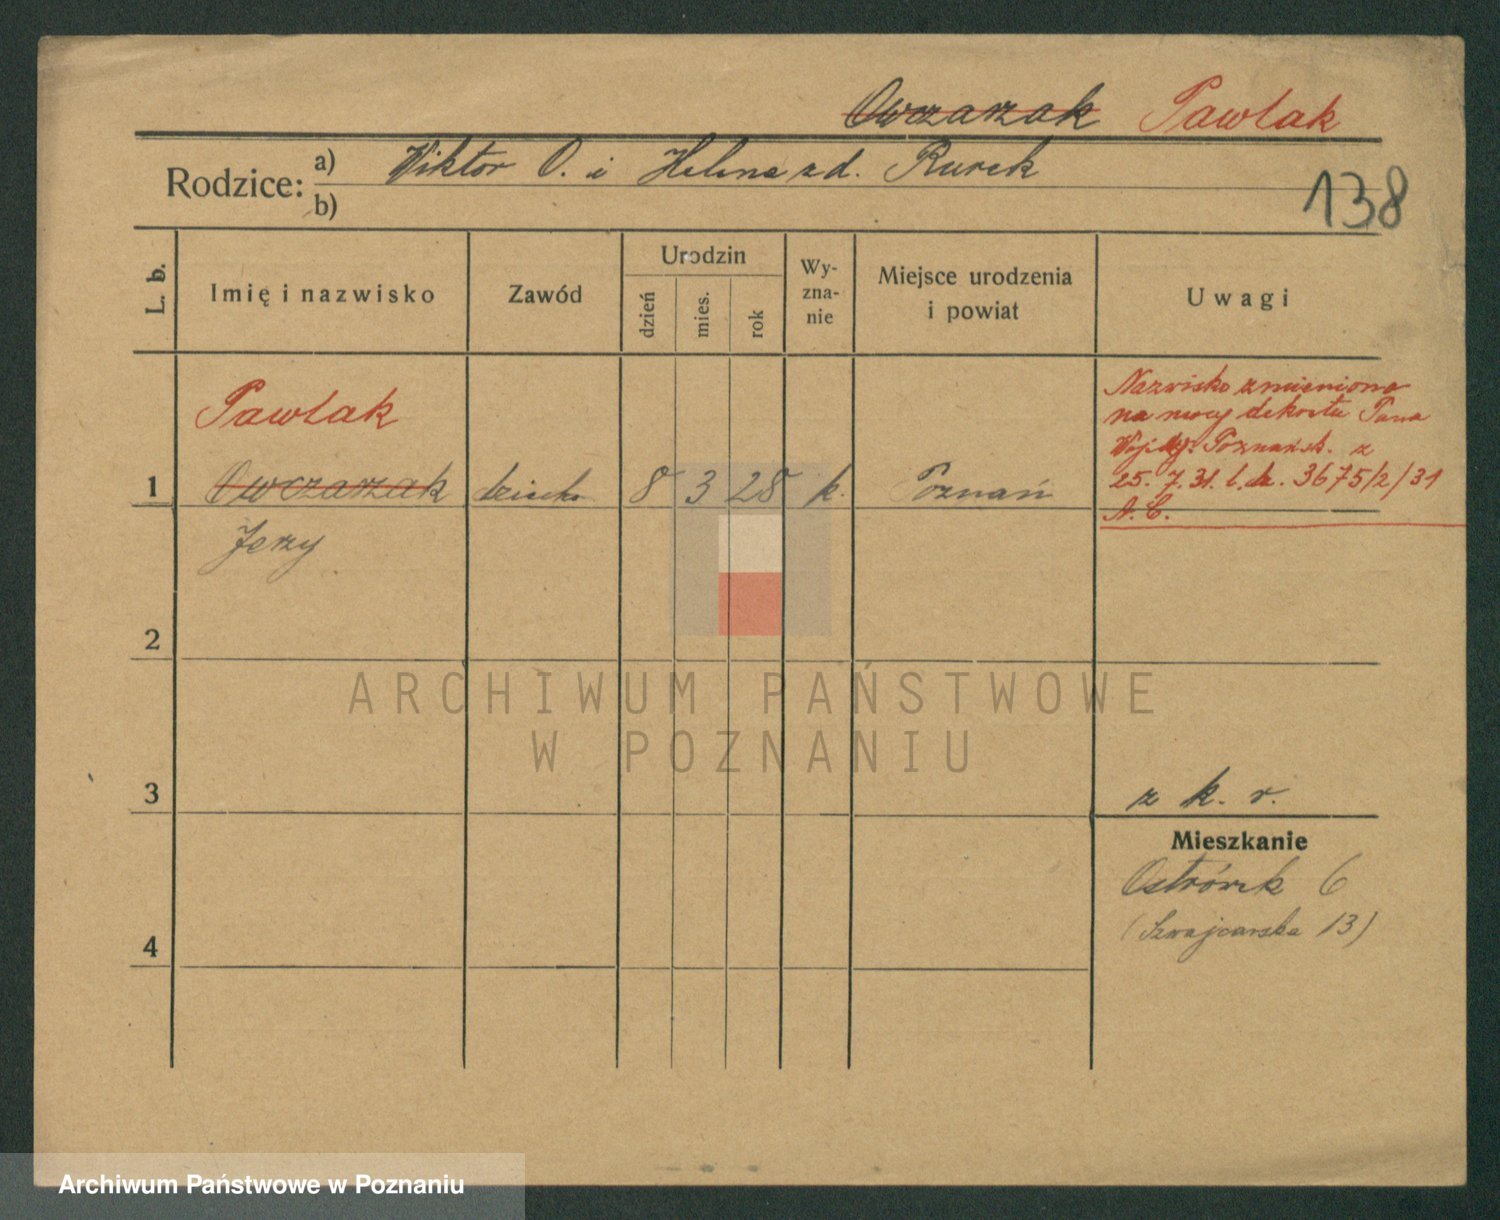 Owczarzak Pawlak
Rodzice: a) Wiktor O. i Helena z d. Rurek
b)
138
L. b.
Imię i nazwisko
Zawód
Urodzin
dzień
mies.
rok
Wy-
zna-
nie
Miejsce urodzenia
i powiat
Uwagi
Pawlak
1 Owczarzak dziecko 8 3 28 k. Poznań
Jerzy
Nazwisko zmieniono
na mocy dekretu Pana
Wojew. Poznańsk. z
25. 7. 31. l. dz. 3675/2/31
A. C.
2
3
z k. r.
Mieszkanie
Ostrówek 6
(Szwajcarska 13)
4
ARCHIWUM PAŃSTWOWE
W POZNANIU
Archiwum Państwowe w Poznaniu